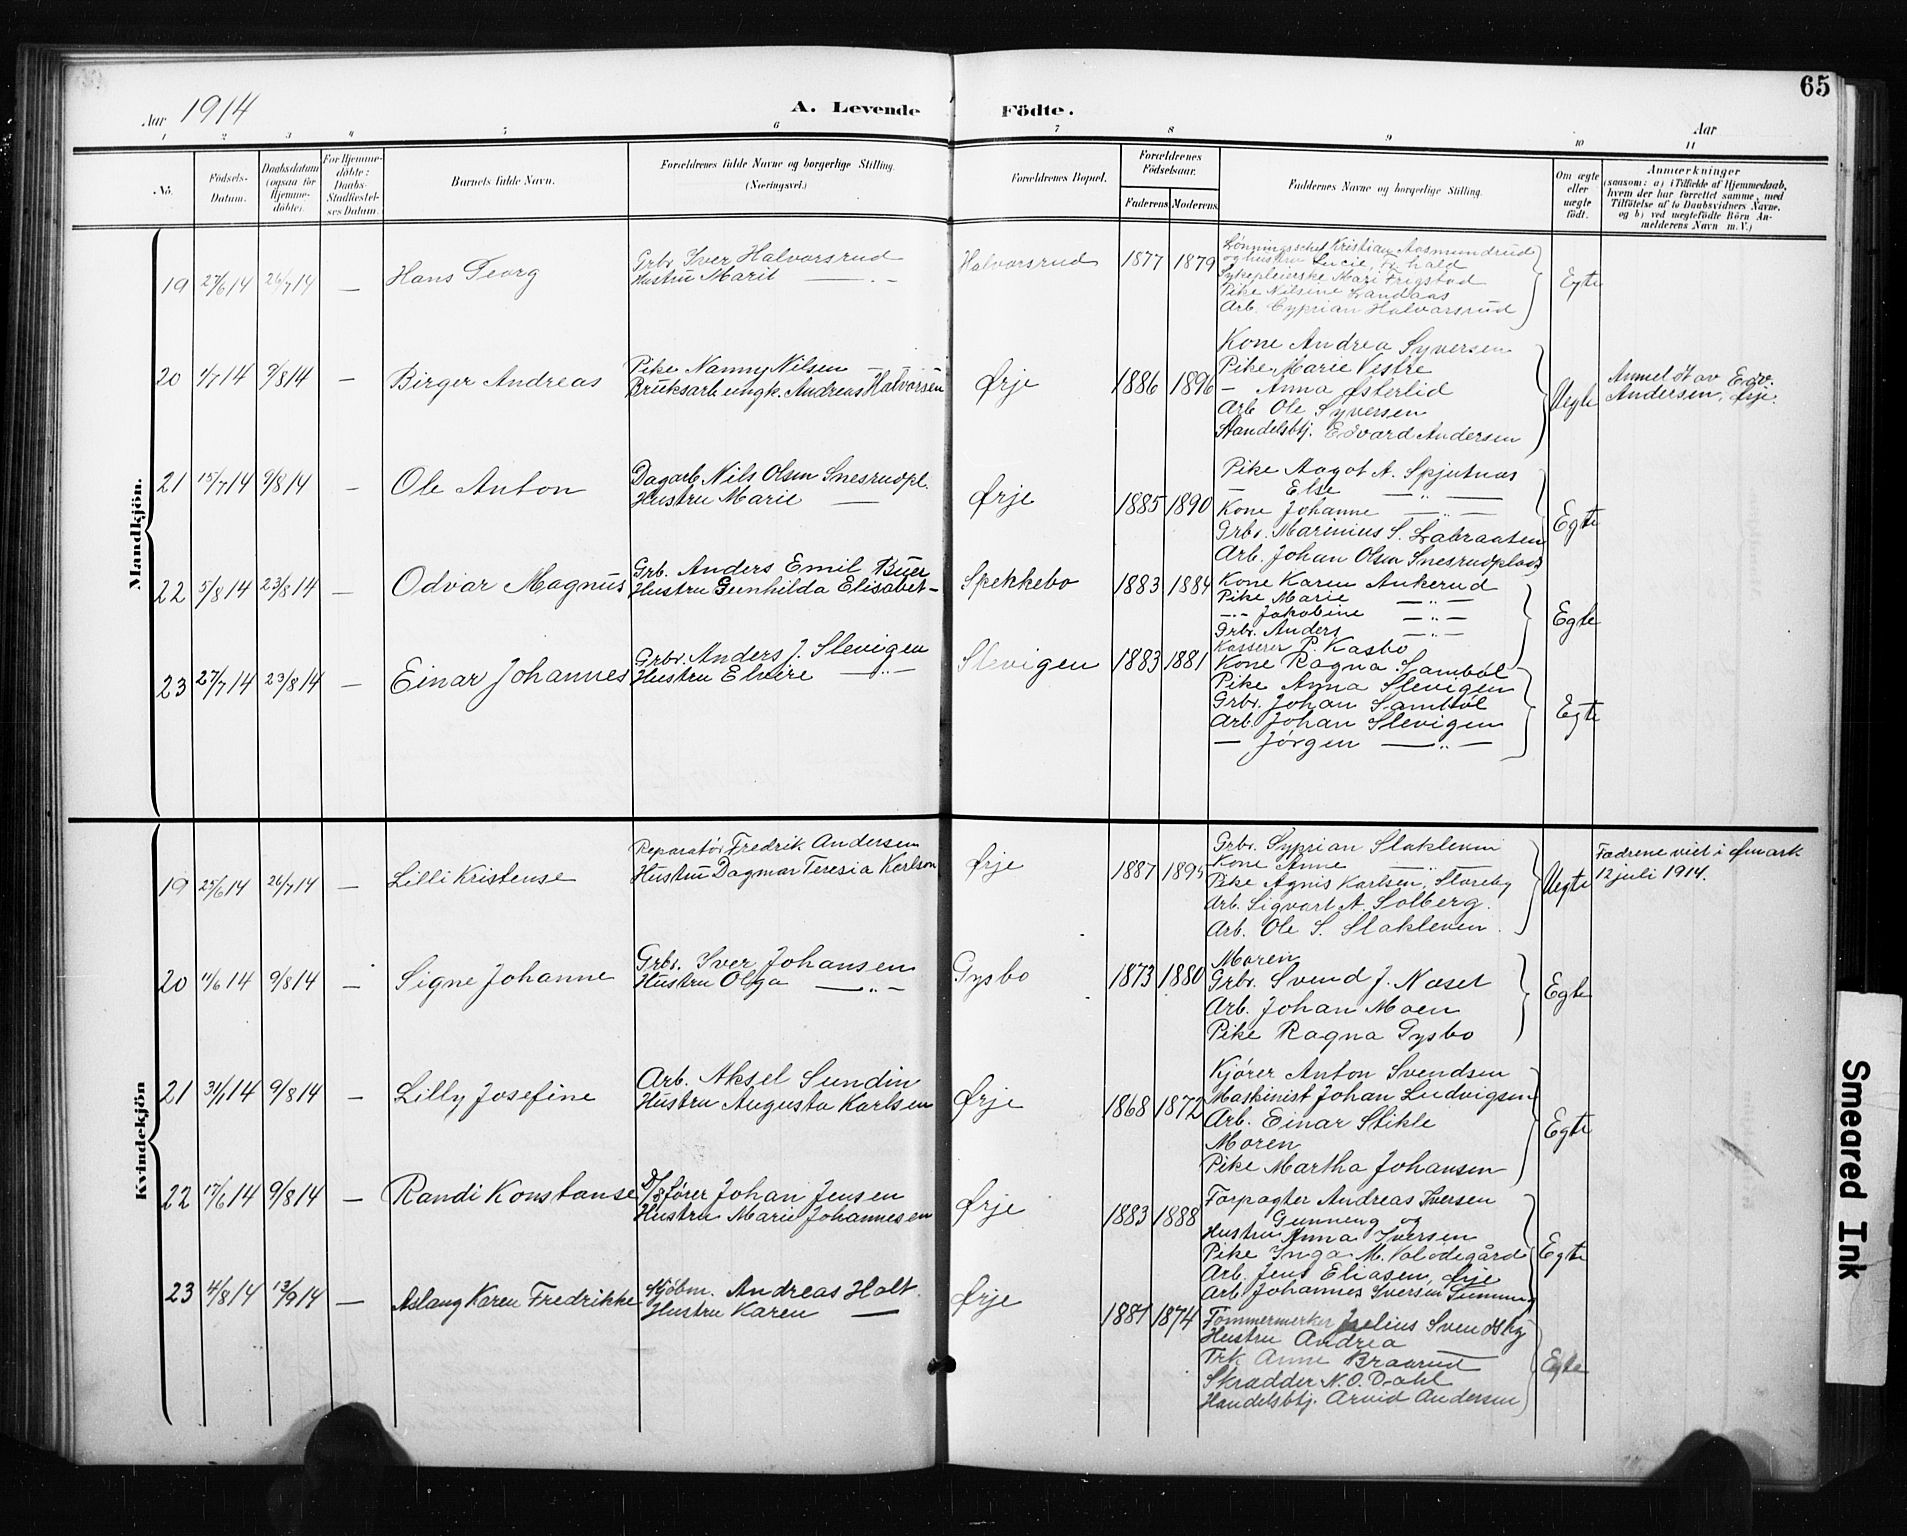 65
Aar 1914
A. Levende Födte.
Aar
1 2 3 4 5 6 7 8 9 10 11
No.
Födsels-Datum.
Daabsdatum (ogsaa for Hjemmedöbte).
For Hjemmedöbte: Daabs-Stadfæstelses Datum.
Barnets fulde Navn.
Forældrenes fulde Navne og borgerlige Stilling. (Næringsvei.)
Forældrenes Bopæl.
Forældrenes Födselsaar.
Faderens Moderens
Faddernes Navne og borgerlige Stilling.
Om ægte eller uægte födt.
Anmærkninger
(saasom: a) i Tilfælde af Hjemmedaab,
hvem der har forrettet samme, med
Tilföielse af to Daabsvidners Navne,
og b) ved uægtefödte Börn An-
melderens Navn m. V.)
Mandkjön.
19 27/6 14 26/7 14 — Hans Georg
Grbr. Iver Halvorsrud
Hustru Marit — „ —
Halvorsrud 1877 1879
Lønningsschef Kristian Aasmundrud
og hustru Lucie,
Sykepleierske Mari Frigstad
Pike Nilsine Landaas
Arb. Cyprian Halvorsrud
Egte
20 1/7 14 9/8 14 — Birger Andreas
Pike Nanny Nilsen
Bruksarb. ungk. Andreas Halvorsen
Ørje 1886 1896
Kone Andrea Syversen
Pike Marie Vestre
— Anna Østerlid
Arb. Ole Syversen
Handelsbtj. Edvard Andersen
Uegte
Anmeldt av Edv.
Andersen, Ørje.
21 15/7 14 9/8 14 — Ole Anton
Dagarb. Nils Olsen Snesrudpl.
Hustru Marie —
Ørje 1885 1890
Pike Aagot A. Spjutnæs
— Else — „ —
Kone Johanne — „ —
Grbr. Marinius S. Labraaten
Arb. Johan Olsen Snesrudplads
Egte
22 5/8 14 23/8 14 — Odvar Magnus
Grb. Anders Emil Buer
Hustru Gunhilda Elisabet —
Spekkebo 1883 1884
Kone Karen Ankerud
Pike Marie — „ —
— „ — Jakobine — „ —
Grbr. Anders — „ —
Kasserer P. Kasbo
Egte
23 27/7 14 23/8 14 — Einar Johannes
Grbr. Anders J. Slevigen
Hustru Elvire — „ —
Slevigen 1883 1881
Kone Ragna Sambøl
Pike Anna Slevigen
Grbr. Johan Sambøl
Arb. Johan Slevigen
— Jørgen — „ —
Egte
Kvindekjön
19 25/6 14 26/7 14 — Lilli Kristense
Reparatør Fredrik Andersen
Hustru Dagmar Teresia Karlson
Ørje 1887 1895
Grbr. Syprian Stakleven
Kone Anne — „ —
Pike Agnis Karlsen, Sloreby
Arb. Sigvart A. Solberg.
Arb. Ole S. Stakleven.
Uegte
Fadrene viet i Ømark
12 juli 1914.
20 11/6 14 9/8 14 — Signe Johanne
Grbr. Iver Johansen
Hustru Olga — „ —
Gysbo 1873 1880
Moren
Grbr. Svend J. Næset
Arb. Johan Moen
Pike Ragna Gysbo
Egte
21 31/ 14 9/8 14 — Lilly Josefine
Arb. Aksel Sundin
Hustru Augusta Karlsen
Ørje 1868 1872
Kjører Anton Svendsen
Maskinist Johan Ludvigsen
Arb. Einar Stikle
Moren
Pike Martha Johansen
Egte
22 17/6 14 9/8 14 — Randi Konstanse
D/Sfører Johan Jensen
Hustru Marie Johannesen
Ørje 1883 1888
Forpagter Andreas Iversen
og
Hustru Anna Iversen
Pike Inga M.
Arb. Jens Eliasen, Ørje
Arb. Johannes Iversen
Egte
23 4/8 14 13/9 14 — Aslaug Karen Fredrikke
Kjøbm. Andreas Holt.
Hustru Karen —
Ørje 1881 1874
Tømmermerker Julius Svendsby
Hustru Andrea —
Frk. Anne Braarud
Skrædder N. O. Dahl
Handelsbtj. Arvid Andersen
Egte
Smeared Ink